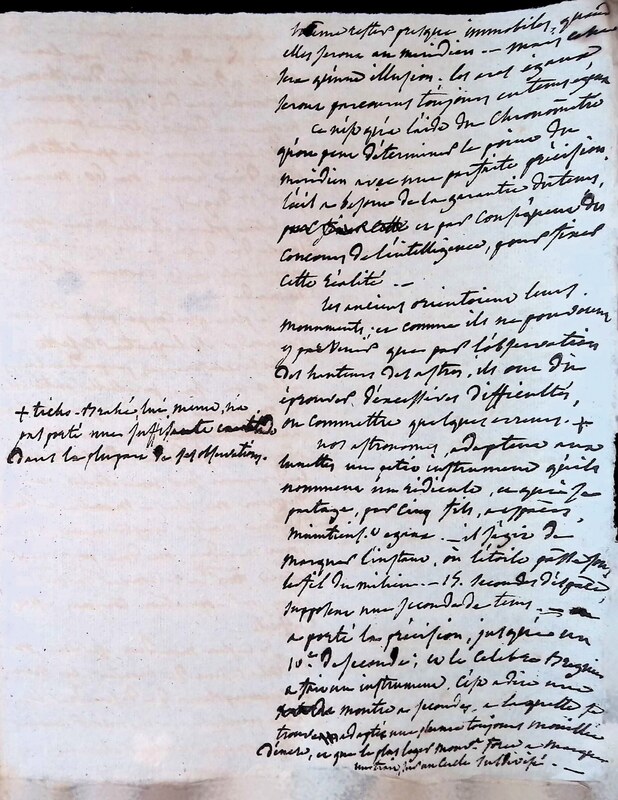 même rester presque immobiles, quand
elles seront au méridien — mais ce ne
sera qu'une illusion. les arcs égaux
seront parcourus toujours en tems égaux
ce n'est qu'à l'aide du Chronomètre
qu'on peut déterminer le point du
méridien avec une parfaite précision.
l'œil a besoin de la garantie du tems,
et par conséquent du
concours de l'intelligence, pour fixer
cette réalité —
les anciens orientoient leurs
monuments; et comme ils ne pouvoient
y parvenir que par l'observation
des hauteurs des astres, ils ont dû
éprouver d'excessives difficultés,
ou commettre quelques erreurs. +
+ ticho-Brahé lui même, n'a
pas porté une suffisante exactitude
dans la plupart de ses observations.
nos astronomes, adaptent aux
lunettes un petit instrument qu'ils
nomment un réticule, et qui se
partage, par cinq fils,
— il s'agit de
marquer l'instant, où l'étoile passe sous
le fil du milieu — 15. secondes d'espace,
supposent une seconde de tems —
a porté la précision, jusqu'à un
10.e de seconde; et le célèbre Breguet
a fait un instrument. C'est à dire une
montre à secondes, à laquelle se
trouve adaptée une plume toujours mouillée
d'encre, et que le plus léger mouvt. force à marquer
un trait, sur un cercle subdivisé. —